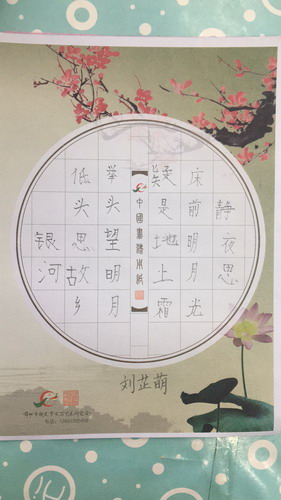 静夜思
床前明月光
疑是地上霜
中國書
举头望明月
低头思故乡
银河
刘芷萌
电话: